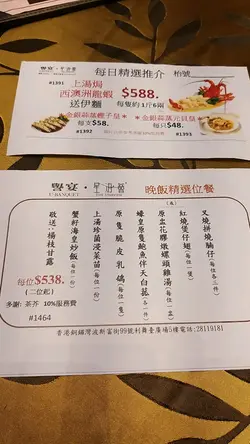 譽宴·星海薈
U-BANQUET
每日精選推介
枱號
#1391
上湯焗
西澳洲龍蝦
$588.
送伊麵
每隻約1斤6兩
金銀蒜蒸蟶子皇
每隻$58.
#1392
金銀蒜蒸元貝皇
每只$48.
#1393
譽宴·星海薈
U-BANQUET
晚飯精選位餐
叉燒拼燒腩仔(每位各三件)
紅燒煲仔翅(每位一隻)
(或)
原盅花膠燉螺頭雞湯(每位一盅)
蠔皇原隻鮑魚伴天白菇(各一件)
原隻脆皮乳鴿(每位一隻)
上湯珍菌浸菜苗(每位一份)
蟹籽海皇炒飯(每位一份)
敬送:楊枝甘露
每位$538.
(二位起)
多謝:茶芥 10%服務費
#1464
香港銅鑼灣波斯富街99號利舞臺廣場5樓電話:28119181